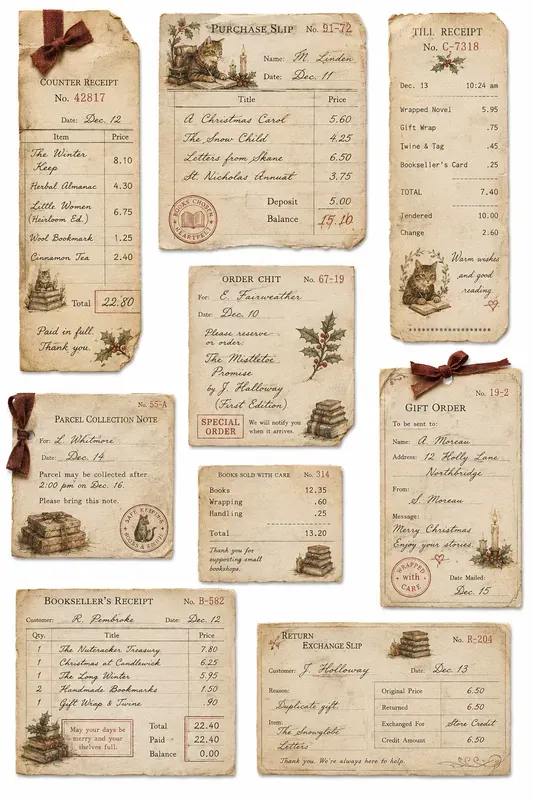 COUNTER RECEIPT
No. 42817
Date: Dec. 12
Item Price
The Winter Keep 8.10
Herbal Almanac 4.30
Little Women (Heirloom Ed.) 6.75
Wool Bookmark 1.25
Cinnamon Tea 2.40
Total 22.80
Paid in full.
Thank you.
PURCHASE SLIP No. 91-72
Name: M. Linden
Date: Dec. 11
Title Price
A Christmas Carol 5.60
The Snow Child 4.25
Letters from Skane 6.50
St. Nicholas Annual 3.75
Deposit 5.00
Balance 15.10
BOOKS CHOSEN
HEARTFELT
TILL RECEIPT
No. C-7318
Dec. 13 10:24 am
Wrapped Novel 5.95
Gift Wrap .75
Twine & Tag .45
Bookseller's Card .25
TOTAL 7.40
Tendered 10.00
Change 2.60
Warm wishes
and good
reading.
ORDER CHIT No. 67-19
For: E. Fairweather
Date: Dec. 10
Please reserve
or order:
The Mistletoe
Promise
by J. Halloway
(First Edition)
SPECIAL
ORDER
We will notify you
when it arrives.
No. 55-A
PARCEL COLLECTION NOTE
For: L. Whitmore
Date: Dec. 14
Parcel may be collected after
2:00 pm on Dec. 16.
Please bring this note.
SAFE KEEPING
BOOKS SOLD WITH CARE No. 314
Books 12.35
Wrapping .60
Handling .25
Total 13.20
Thank you for
supporting small
bookshops.
No. 19-2
GIFT ORDER
To be sent to:
Name: A. Moreau
Address: 12 Holly Lane
Northbridge
From:
S. Moreau
Message:
Merry Christmas
Enjoy your stories.
WRAPPED
with
CARE
Date Mailed:
Dec. 15
BOOKSELLER'S RECEIPT No. B-582
Customer: R. Pembroke Date: Dec. 12
Qty. Title Price
1 The Nutcracker Treasury 7.80
1 Christmas at Candlewick 6.25
1 The Long Winter 5.95
2 Handmade Bookmarks 1.50
1 Gift Wrap & Twine .90
May your days be
merry and your
shelves full.
Total 22.40
Paid 22.40
Balance 0.00
RETURN
EXCHANGE SLIP No. R-204
Customer: J. Holloway Date: Dec. 13
Reason:
Duplicate gift
Item:
The Snowglobe
Letters
Original Price 6.50
Returned 6.50
Exchanged For Store Credit
Credit Amount 6.50
Thank you. We're always here to help.